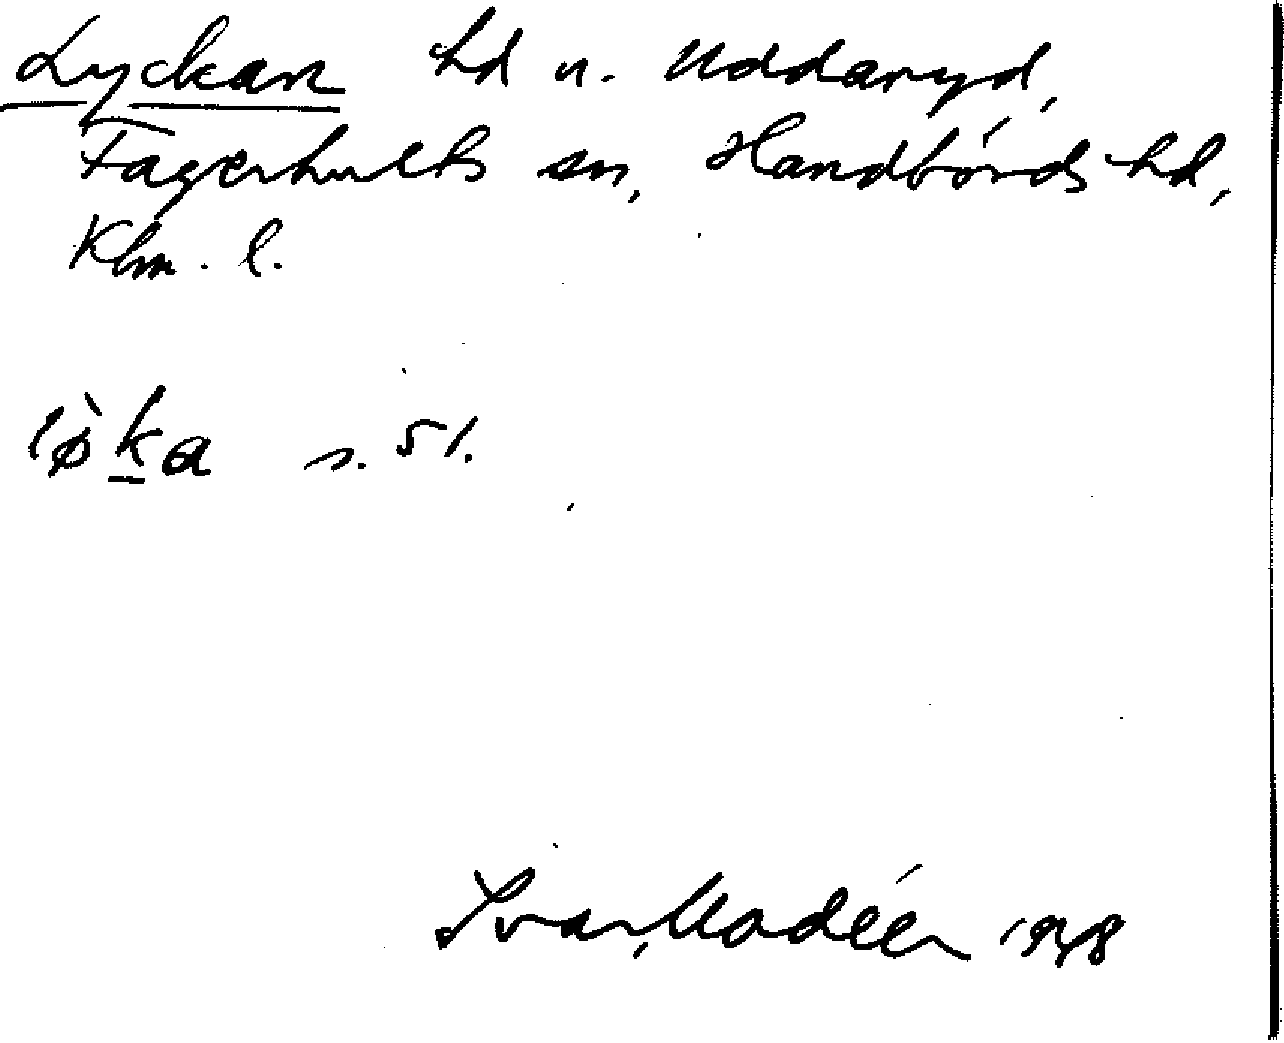 Lyckan hd u. Uddaryd,
Fagerhults sn, Handbörds hd,
Klm. l.
lø̀ka s. 51.
Ivar Modéer 1938